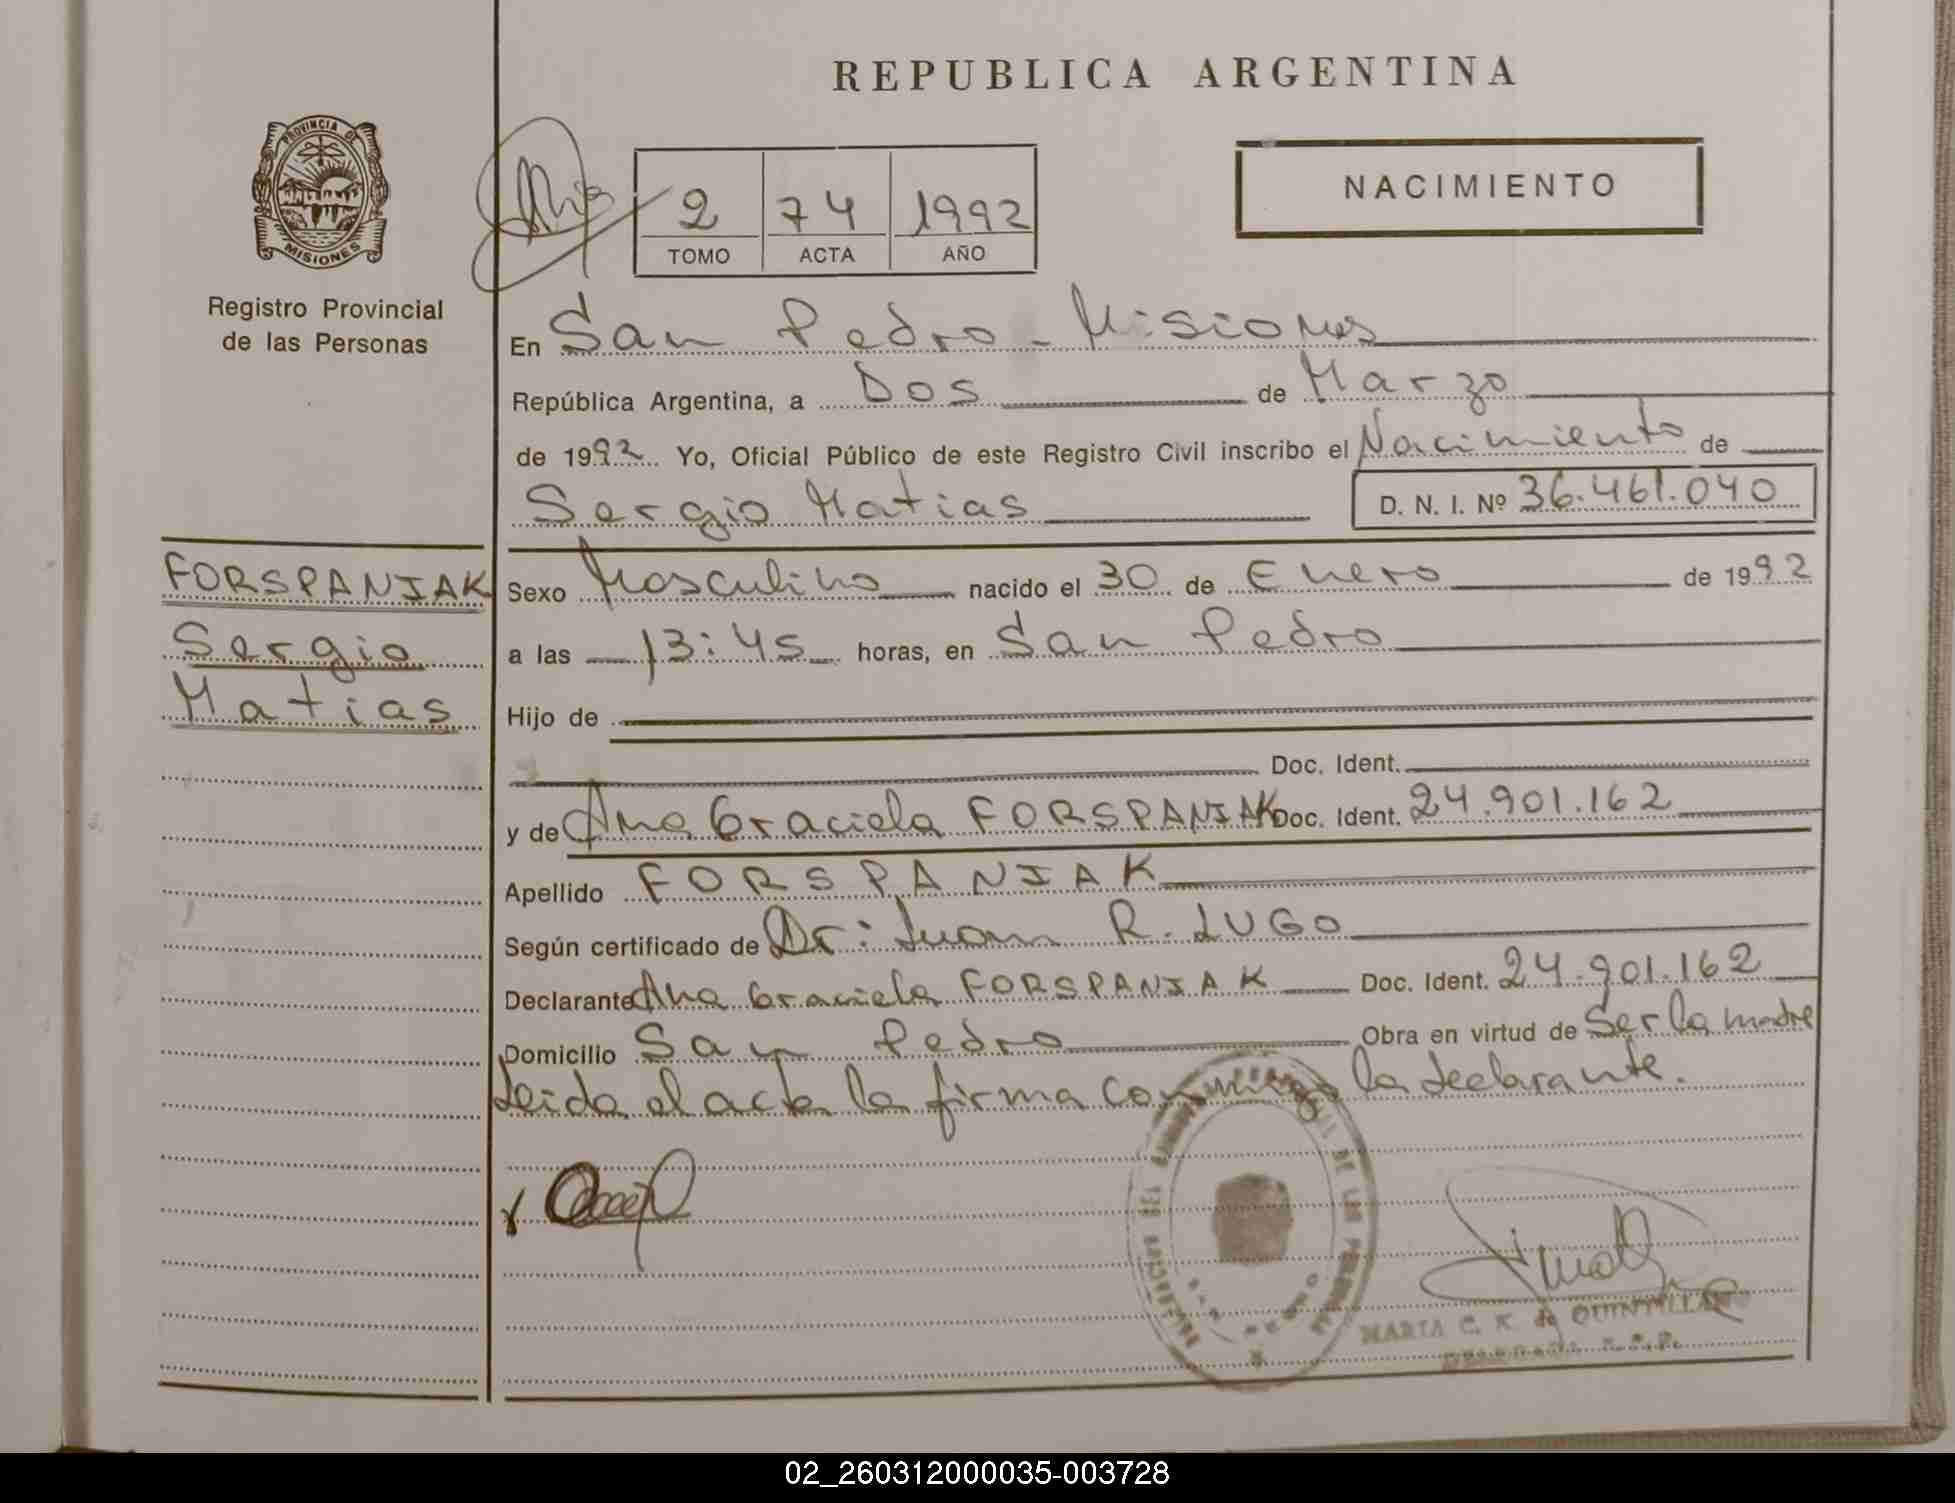 REPUBLICA ARGENTINA
PROVINCIA DE
MISIONES
Registro Provincial
de las Personas
2 74 1992
TOMO ACTA AÑO
NACIMIENTO
En San Pedro - Misiones
República Argentina, a Dos de Marzo
de 1992 Yo, Oficial Público de este Registro Civil inscribo el Nacimiento de
Sergio Matias D. N. I. Nº 36.461.040
FORSPANIAK
Sergio
Matias
Sexo Masculino nacido el 30 de Enero de 1992
a las 13:45 horas, en San Pedro
Hijo de
Doc. Ident.
y de Ana Graciela FORSPANIAK Doc. Ident. 24.901.162
Apellido FORSPANIAK
Según certificado de Dr: Juan R. LUGO
Declarante Ana Graciela FORSPANIAK Doc. Ident. 24.901.162
Domicilio San Pedro Obra en virtud de Ser la madre
Leida el acta la firma conmigo la declarante.
MARIA C. K. de QUINTILLAN
DELEGADA R.C.P.
02_260312000035-003728